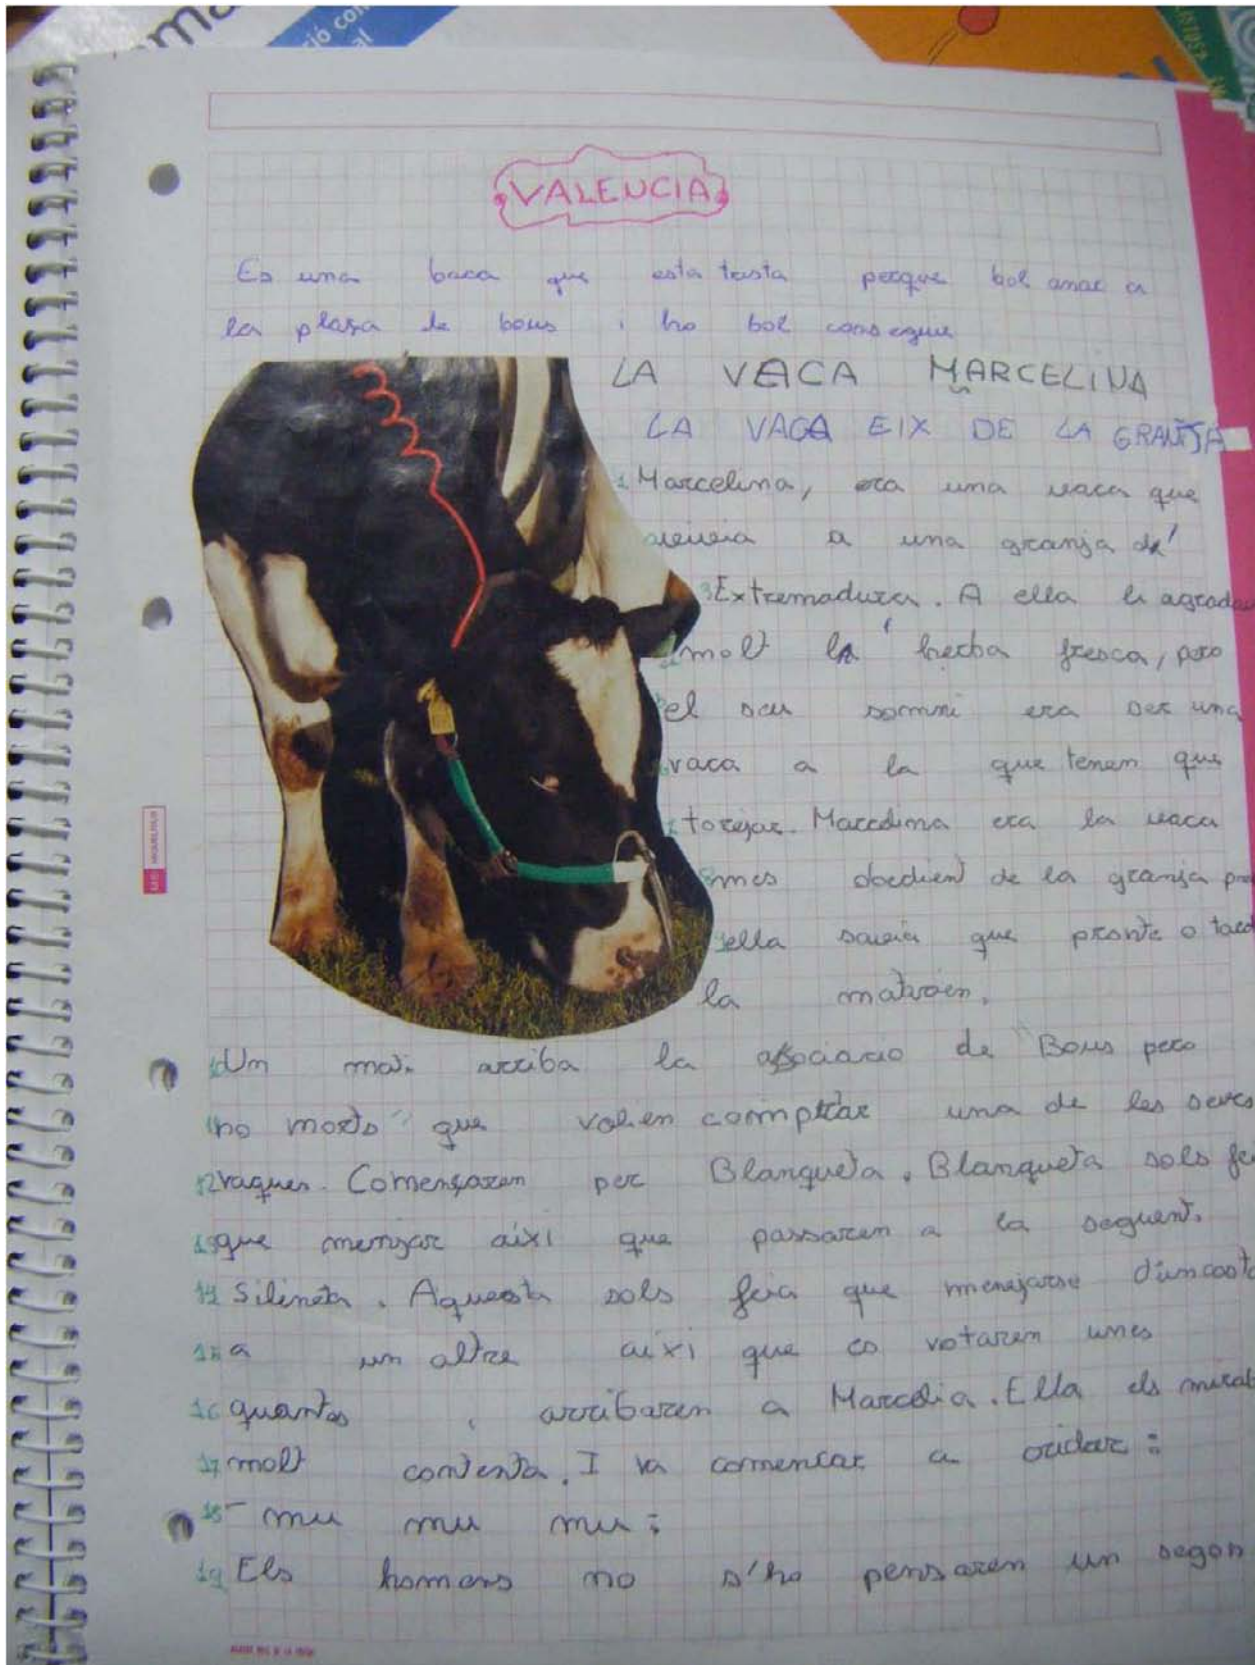 ió con
al
VALENCIA
Es una baca que esta trista perque bol anar a
la plaça de bous i ho bol conseguir
LA VACA MARCELINA
LA VACA EIX DE LA GRANJA
1 Marcelina, era una vaca que
2 vivia a una granja d'
3 Extremadura. A ella li agrada
4 molt l'herba fresca, pero
5 el seu somni era ser una
6 vaca a la que tenen que
7 torejar. Marcelina era la vaca
8 mes obedien de la granja
9 ella savia que pronte o tard
la matarien.
10 Un mati arriba la asociacio de "Bous pero
11 no morts" que volien comptrar una de les seves
12 vaques. Començaren per Blanqueta. Blanqueta sols fe
13 que menjar aixi que passaren a la seguent.
14 Silineta. Aquesta sols feia que menejarse d'un costa
15 a un altre aixi que es votaren unes
16 quantes i arribaren a Marcelia. Ella els mirab
17 molt contenta. I va comencar a cridar:
18 - mu mu mu:
19 Els homens no s'ho pensaren un segon